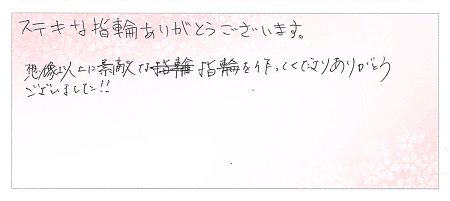 ステキな指輪ありがとうございます。
想像以上に素敵な指輪を作ってくださりありがとう
ございました!!